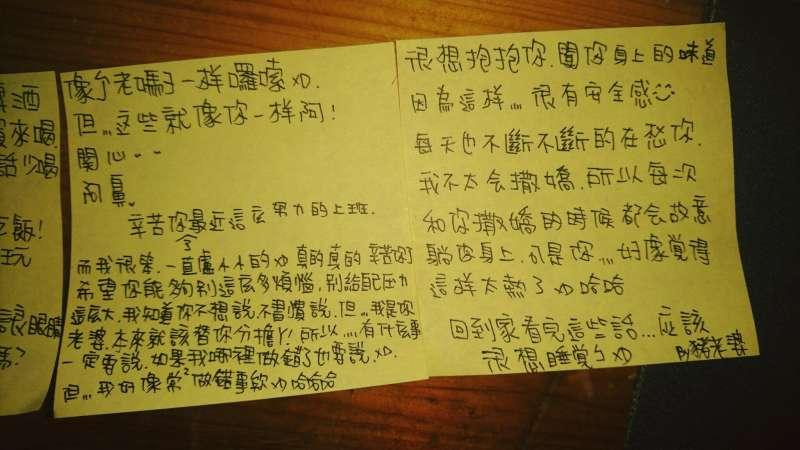 酒
來喝
話少喝
吃飯!
玩
眼睛
嗎?
像个老嗎子一样囉嗦XD.
但,,,這些就像你一样阿!
関心~~
阿鼻。
辛苦你最近這庅努力的上班.
而我很笨.一直盧小小的XD真的真的辛苦你了
希望你能夠別這庅多煩惱,別給自己压力
這庅大.我知道你不想說.不習慣說.但,,,我是你
老婆.本來就該替你分擔ㄚ!所以,,,,有什庅事
一定要說.如果我哪裡做錯了也要說.XD.
但,,,我好像常²做錯事欸XD哈哈哈
很想抱抱你.聞你身上的味道
因為這样,,,,很有安全感☺
每天也不斷不斷的在愁你.
我不太会撒嬌.所以每次
和你撒嬌的時候都会故意
躺你身上.可是你,,,,好像覺得
這样太熱了XD哈哈
回到家看完這些話...應該
很想睡覚ㄅXD
By豬老婆